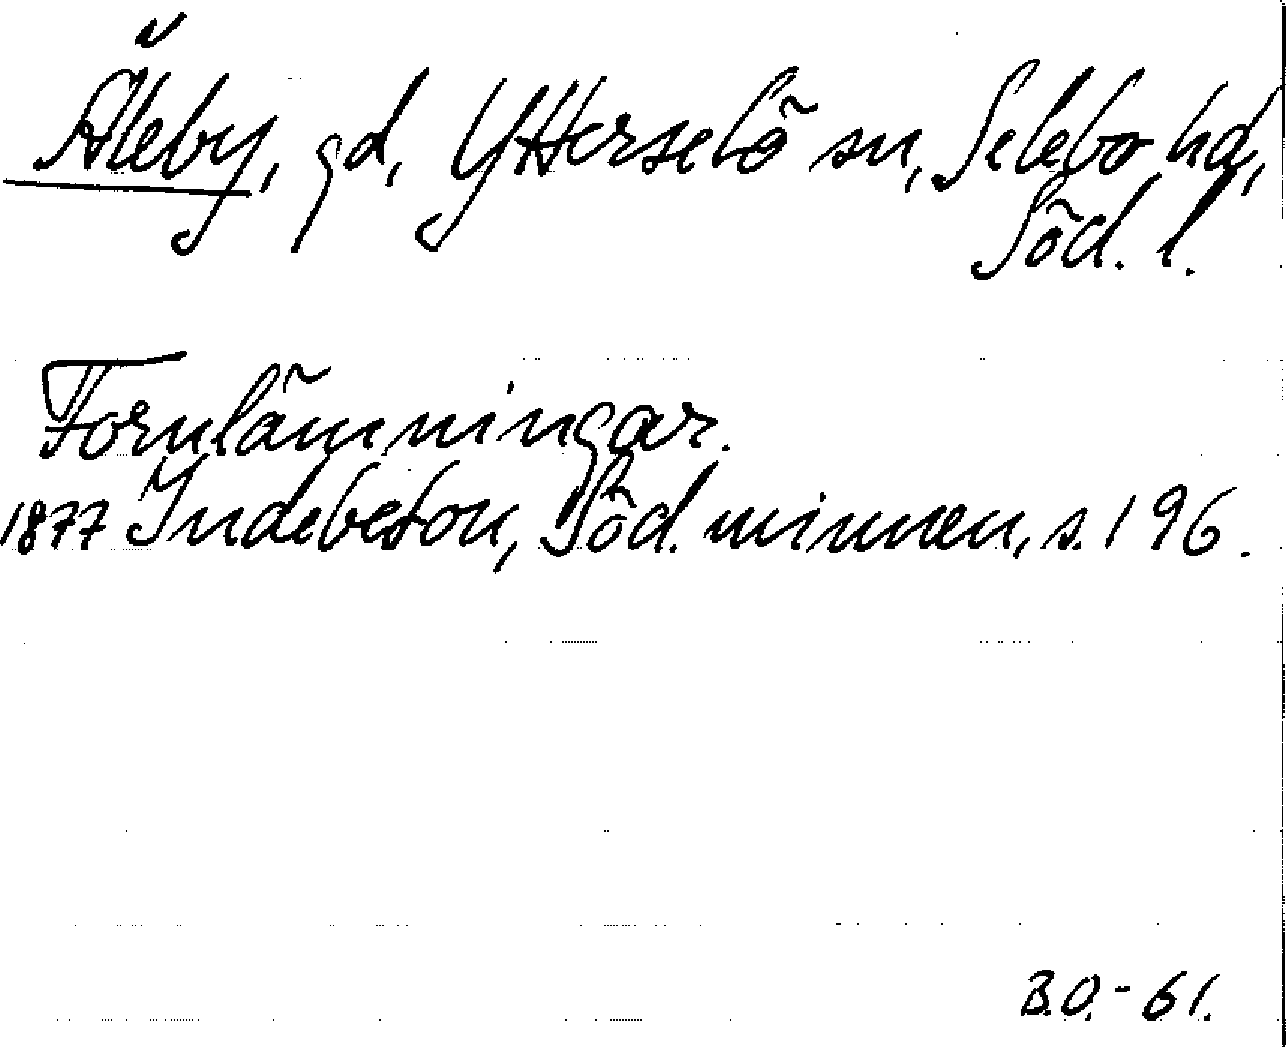 Åleby, gd, Ytterselö sn, Selebo hd,
Söd. l.
Fornlämningar.
1877 Indebetou, Söd. minnen, s. 196.
B.O.-61.